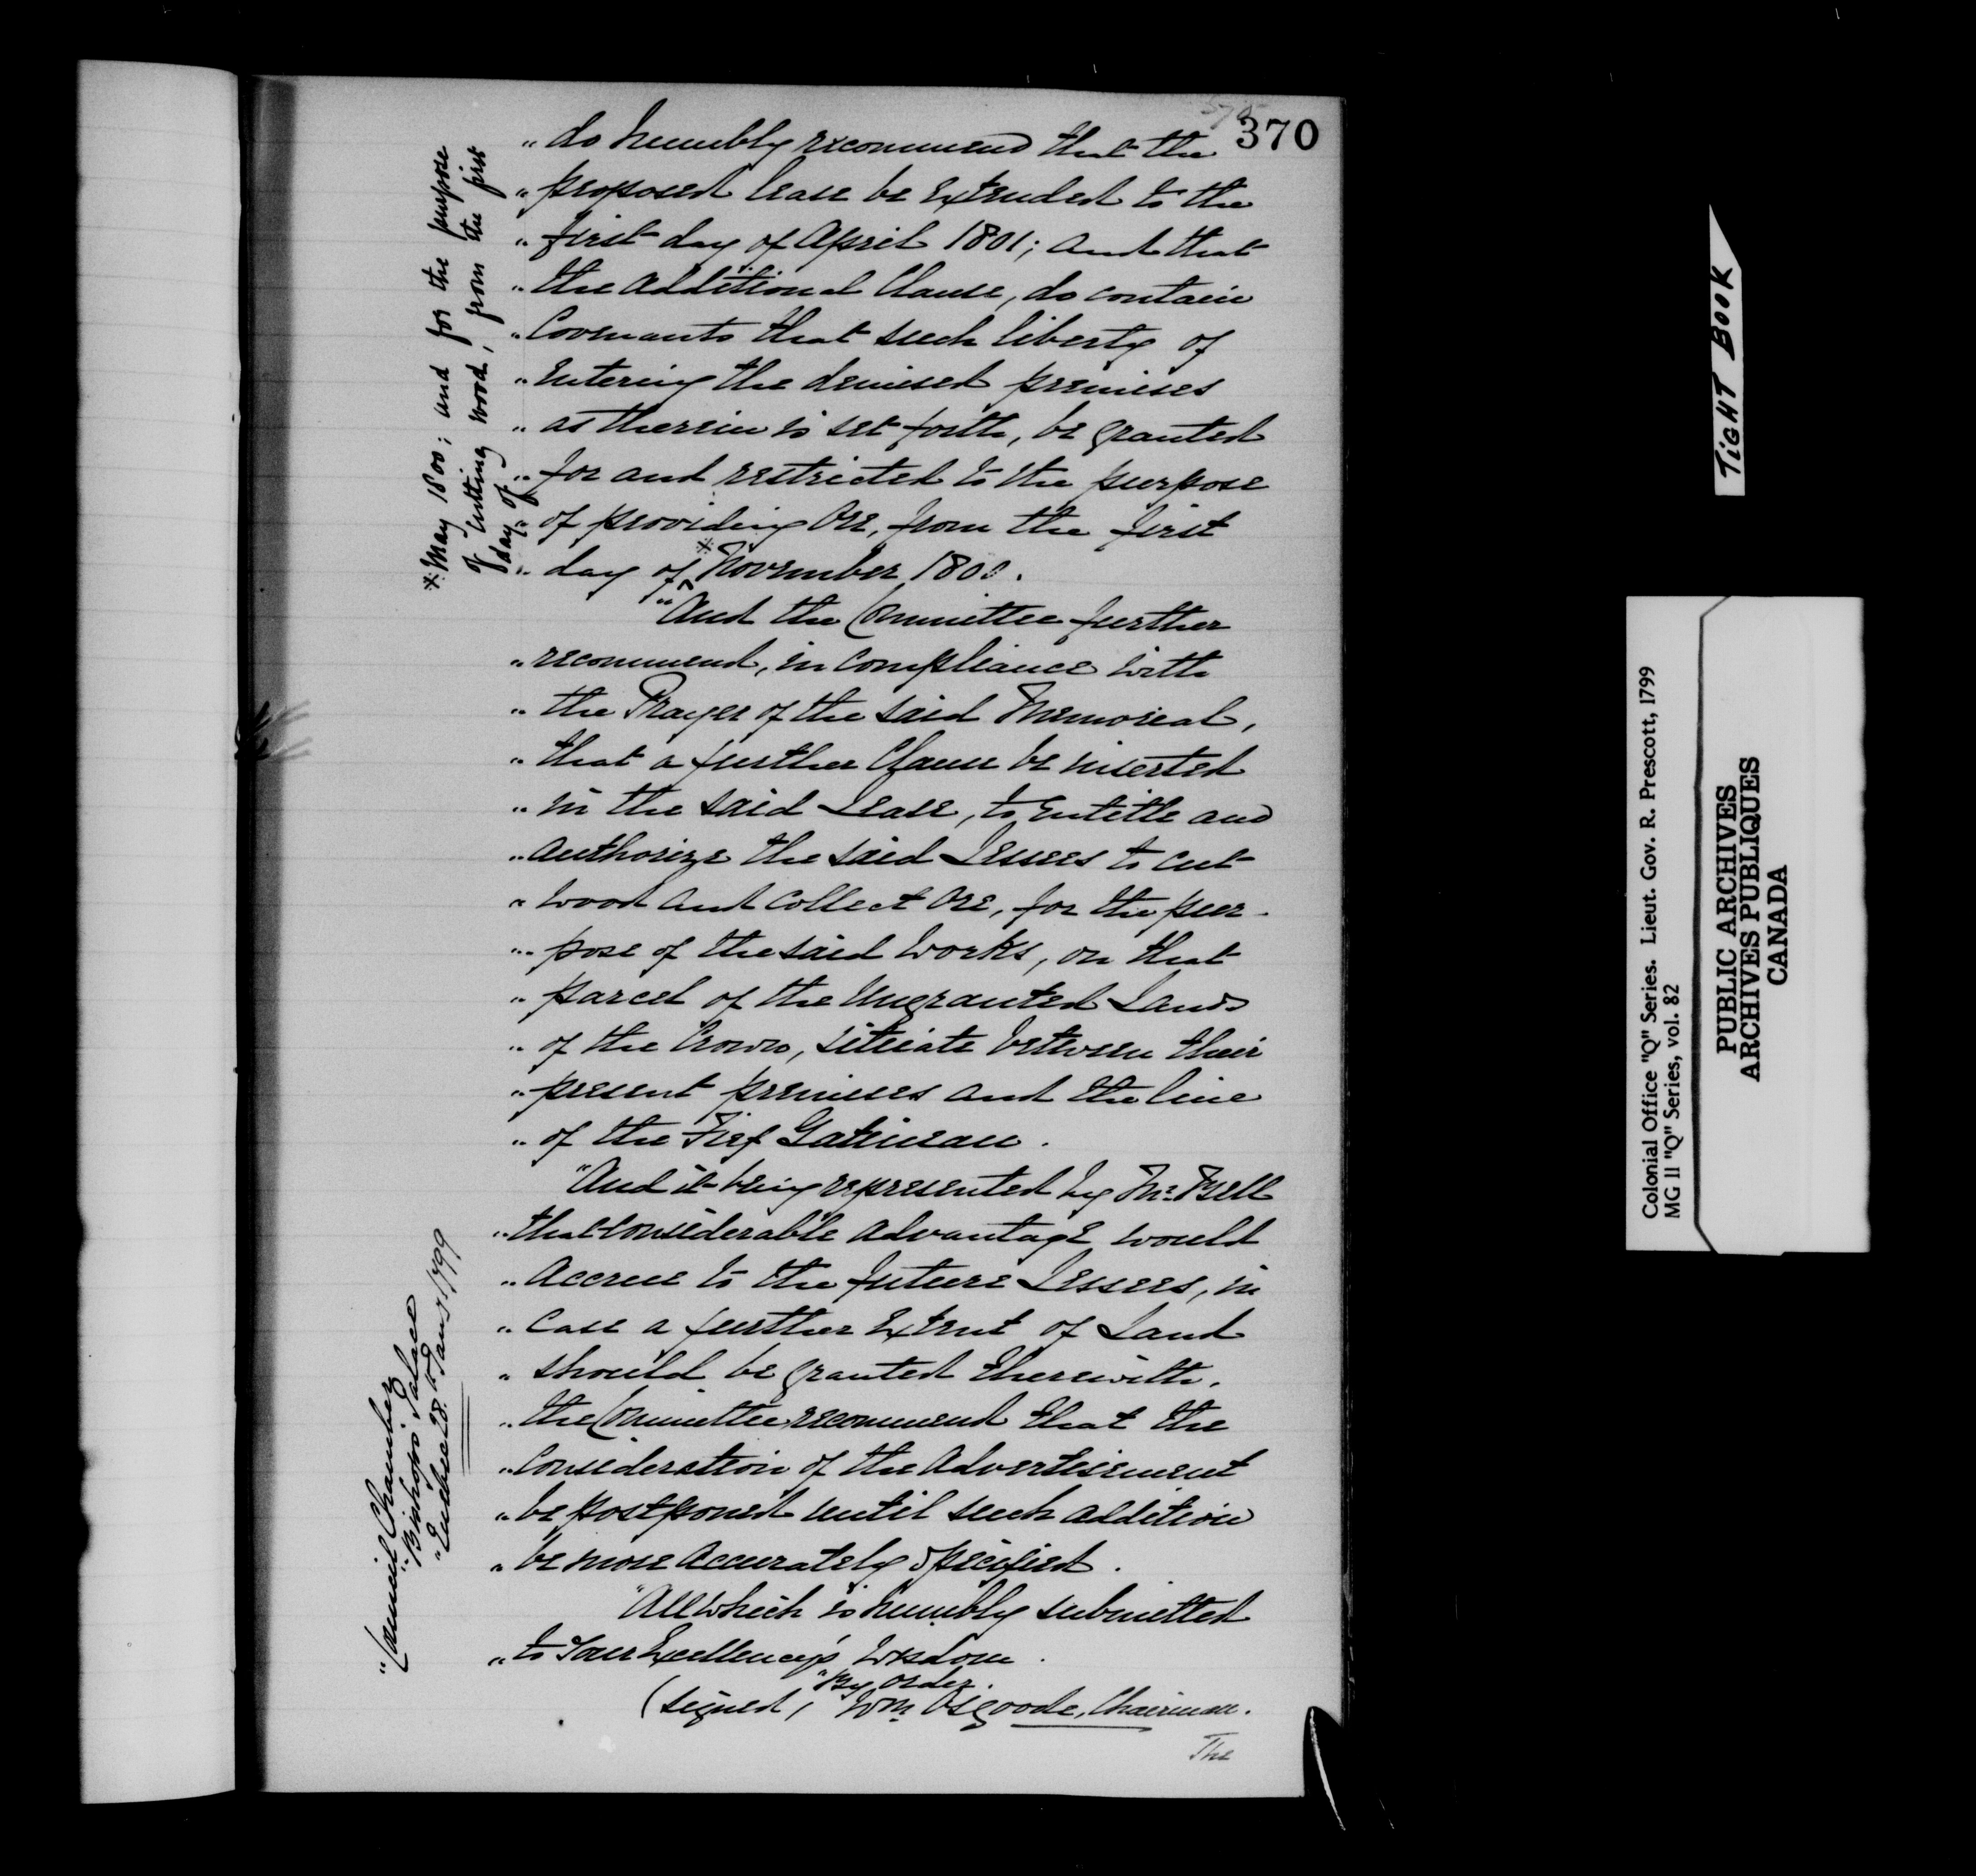 370
" do humbly recommend that the
" proposed lease be extended to the
" first day of April 1801; and that
" the additional Clause, do contain
" Covenants that such liberty of
" Entering the demised premises
" as therein is set forth, be granted
" for and restricted to the purpose
" of providing Ore, from the first
" day of * November 1800.
* May 1800; and for the purpose
of cutting wood, from the first
day of
" And the Committee further
" recommend, in compliance with
" the Prayer of the said Memorial,
" that a further Clause be inserted
" in the said Lease, to Entitle and
" authorize the said Lessees to cut
" wood and collect Ore, for the pur-
" pose of the said Works, on that
" parcel of the Ungranted Lands
" of the Crown, situate between their
" present premises and the line
" of the Fief Gatineau.
" And it being represented by Mr. Bell
" that considerable advantage would
" Accrue to the future Lessees, in
" Case a further Extent of Land
" should be granted therewith,
" the Committee recommend that the
" Consideration of the Advertisement
" be postponed until such addition
" be more accurately specified.
" All which is humbly submitted
" to Your Excellency's Wisdom.
" By order.
(signed) Wm Osgoode, Chairman.
" Council Chamber
" Bishops Palace
" Quebec 28th Jany 1799
The
TIGHT BOOK
Colonial Office "Q" Series. Lieut. Gov. R. Prescott, 1799
MG 11 "Q" Series, vol. 82
PUBLIC ARCHIVES
ARCHIVES PUBLIQUES
CANADA